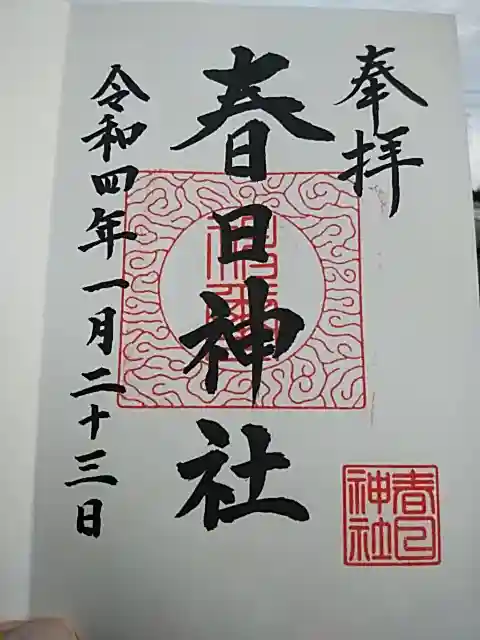 奉拝
春日神社
令和四年一月二十三日
春日
神社